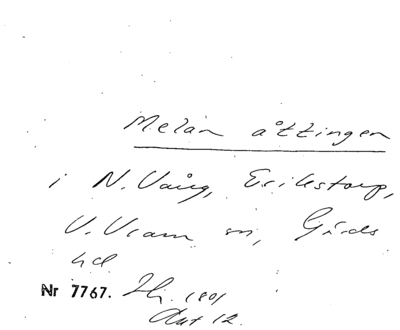 Melan åttingen
i N. Vång, Erikstorp,
V. Vram sn, Gärds
hd
Nr 7767. Zh. 1801
Akt 12.